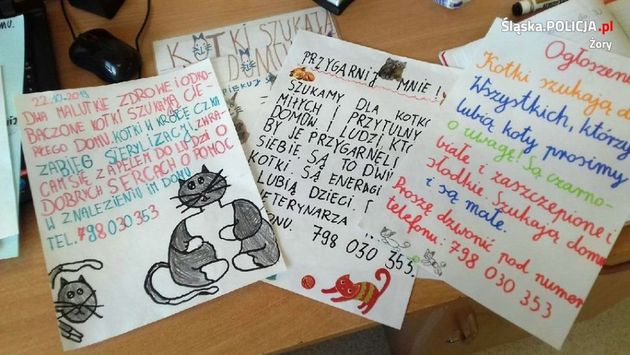 Śląska.POLICJA.pl
Żory
22.10.2019
DWA MALUTKIE ZDROWE I ODRO-
BACZONE KOTKI SZUKAJĄ CIE-
PŁEGO DOMU. KOTKI W KRÓTCE CZEKA
ZABIEG STERYLIZACJI ZWRA-
CAM SIĘ Z APELEM DO LUDZI O
DOBRYCH SERCACH O POMOC
W ZNALEZIENIU IM DOMU
TEL. 798 030 353
KOTKI SZUKAJĄ
DOMÓW
PRZYGARNIJ MNIE!
SZUKAMY DLA KOTK
MIŁYCH I PRZYTULNY
DOMÓW I LUDZI KTÓ
BY JE PRZYGARNĘLI
SIEBIE. SĄ TO DWI
KOTKI. SĄ ENERGI
LUBIĄ DZIECI.
WETERYNARZA
798 030 353.
Ogłoszeni
Kotki szukają do
Wszystkich, którzy
lubią koty prosimy
o uwagę! Są czarno-
białe i zaszczepione i
słodkie. Szukają domu
i są małe.
Proszę dzwonić pod numer
telefonu: 798 030 353